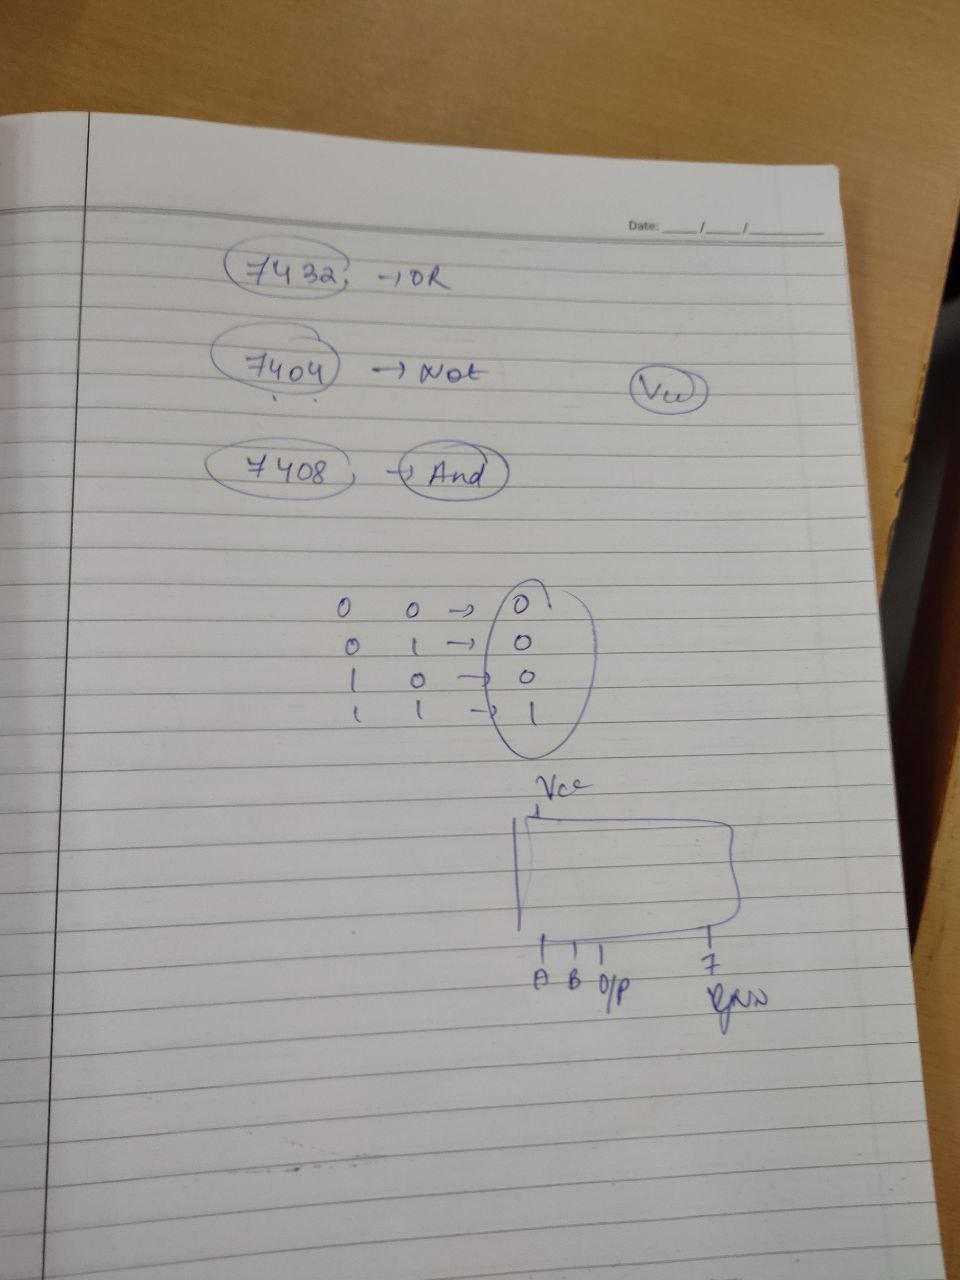 Date: ___/___/______
7432, → OR
7404 → Not
Vcc
7408, → And
0 0 → 0
0 1 → 0
1 0 → 0
1 1 → 1
Vcc
A B O/P 7